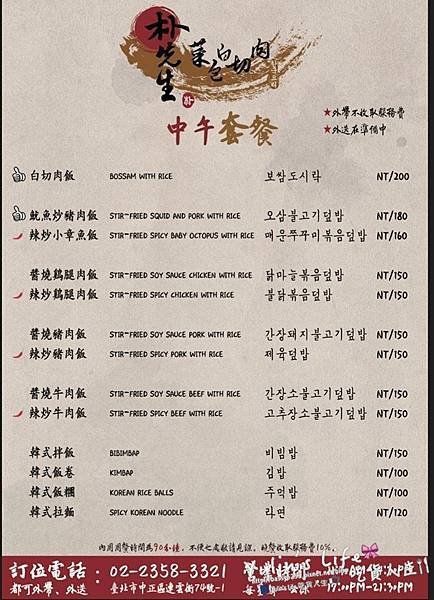 朴先生
菜包白切肉
中午套餐
★外帶不收取服務費
★外送在準備中
白切肉飯 BOSSAM WITH RICE 보쌈도시락 NT/200
魷魚炒豬肉飯 STIR-FRIED SQUID AND PORK WITH RICE 오삼불고기덮밥 NT/180
辣炒小章魚飯 STIR-FRIED SPICY BABY OCTOPUS WITH RICE 매운쭈꾸미볶음덮밥 NT/160
醬燒鷄腿肉飯 STIR-FRIED SOY SAUCE CHICKEN WITH RICE 닭마늘볶음덮밥 NT/150
辣炒鷄腿肉飯 STIR-FRIED SPICY CHICKEN WITH RICE 불닭볶음덮밥 NT/150
醬燒豬肉飯 STIR-FRIED SOY SAUCE PORK WITH RICE 간장돼지불고기덮밥 NT/150
辣炒豬肉飯 STIR-FRIED SPICY PORK WITH RICE 제육덮밥 NT/150
醬燒牛肉飯 STIR-FRIED SOY SAUCE BEEF WITH RICE 간장소불고기덮밥 NT/150
辣炒牛肉飯 STIR-FRIED SPICY BEEF WITH RICE 고추장소불고기덮밥 NT/150
韓式拌飯 BIBIMBAP 비빔밥 NT/150
韓式飯卷 KIMBAP 김밥 NT/100
韓式飯糰 KOREAN RICE BALLS 주먹밥 NT/100
韓式拉麵 SPICY KOREAN NOODLE 라면 NT/120
內用用餐時間為90分鐘，不便之處敬請見諒。用餐收取服務費10%。
訂位電話：02-2358-3321
都可外帶、外送 臺北市中正區連雲街74號-1
17:00PM-21:30PM